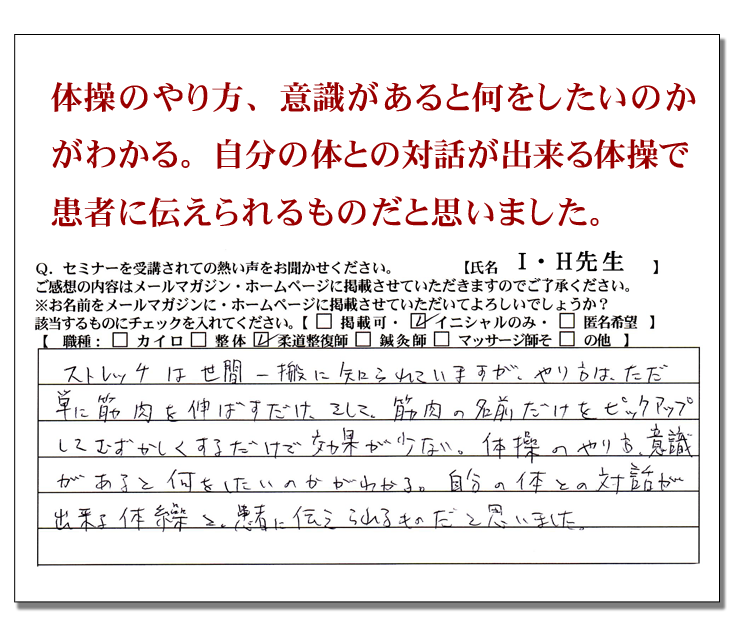 体操のやり方、意識があると何をしたいのか
がわかる。自分の体との対話が出来る体操で
患者に伝えられるものだと思いました。
Q．セミナーを受講されての熱い声をお聞かせください。 【氏名 I・H先生 】
ご感想の内容はメールマガジン・ホームページに掲載させていただきますのでご了承ください。
※お名前をメールマガジンに・ホームページに掲載させていただいてよろしいでしょうか？
該当するものにチェックを入れてください。【 □ 掲載可・ ☑ イニシャルのみ・ □ 匿名希望 】
【 職種： □ カイロ □ 整体 ☑ 柔道整復師 □ 鍼灸師 □ マッサージ師そ □ の他 】
ストレッチは世間一搬に知られていますが、やり方は、ただ
単に筋肉を伸ばすだけ、そして、筋肉の名前だけをピックアップ
してむずかしくするだけで効果が少ない。体操のやり方、意識
があると何をしたいのかがわかる。自分の体との対話が
出来る体操と、患者に伝えられるものだと思いました。